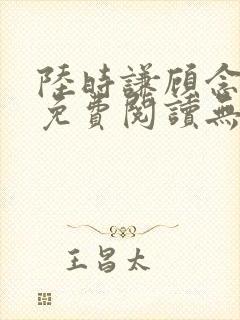 陸時謙顾念
免費閱讀無
王昌太